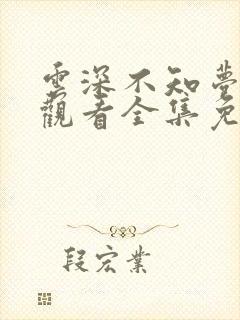 雲深不知夢
觀看全集免
段宏業